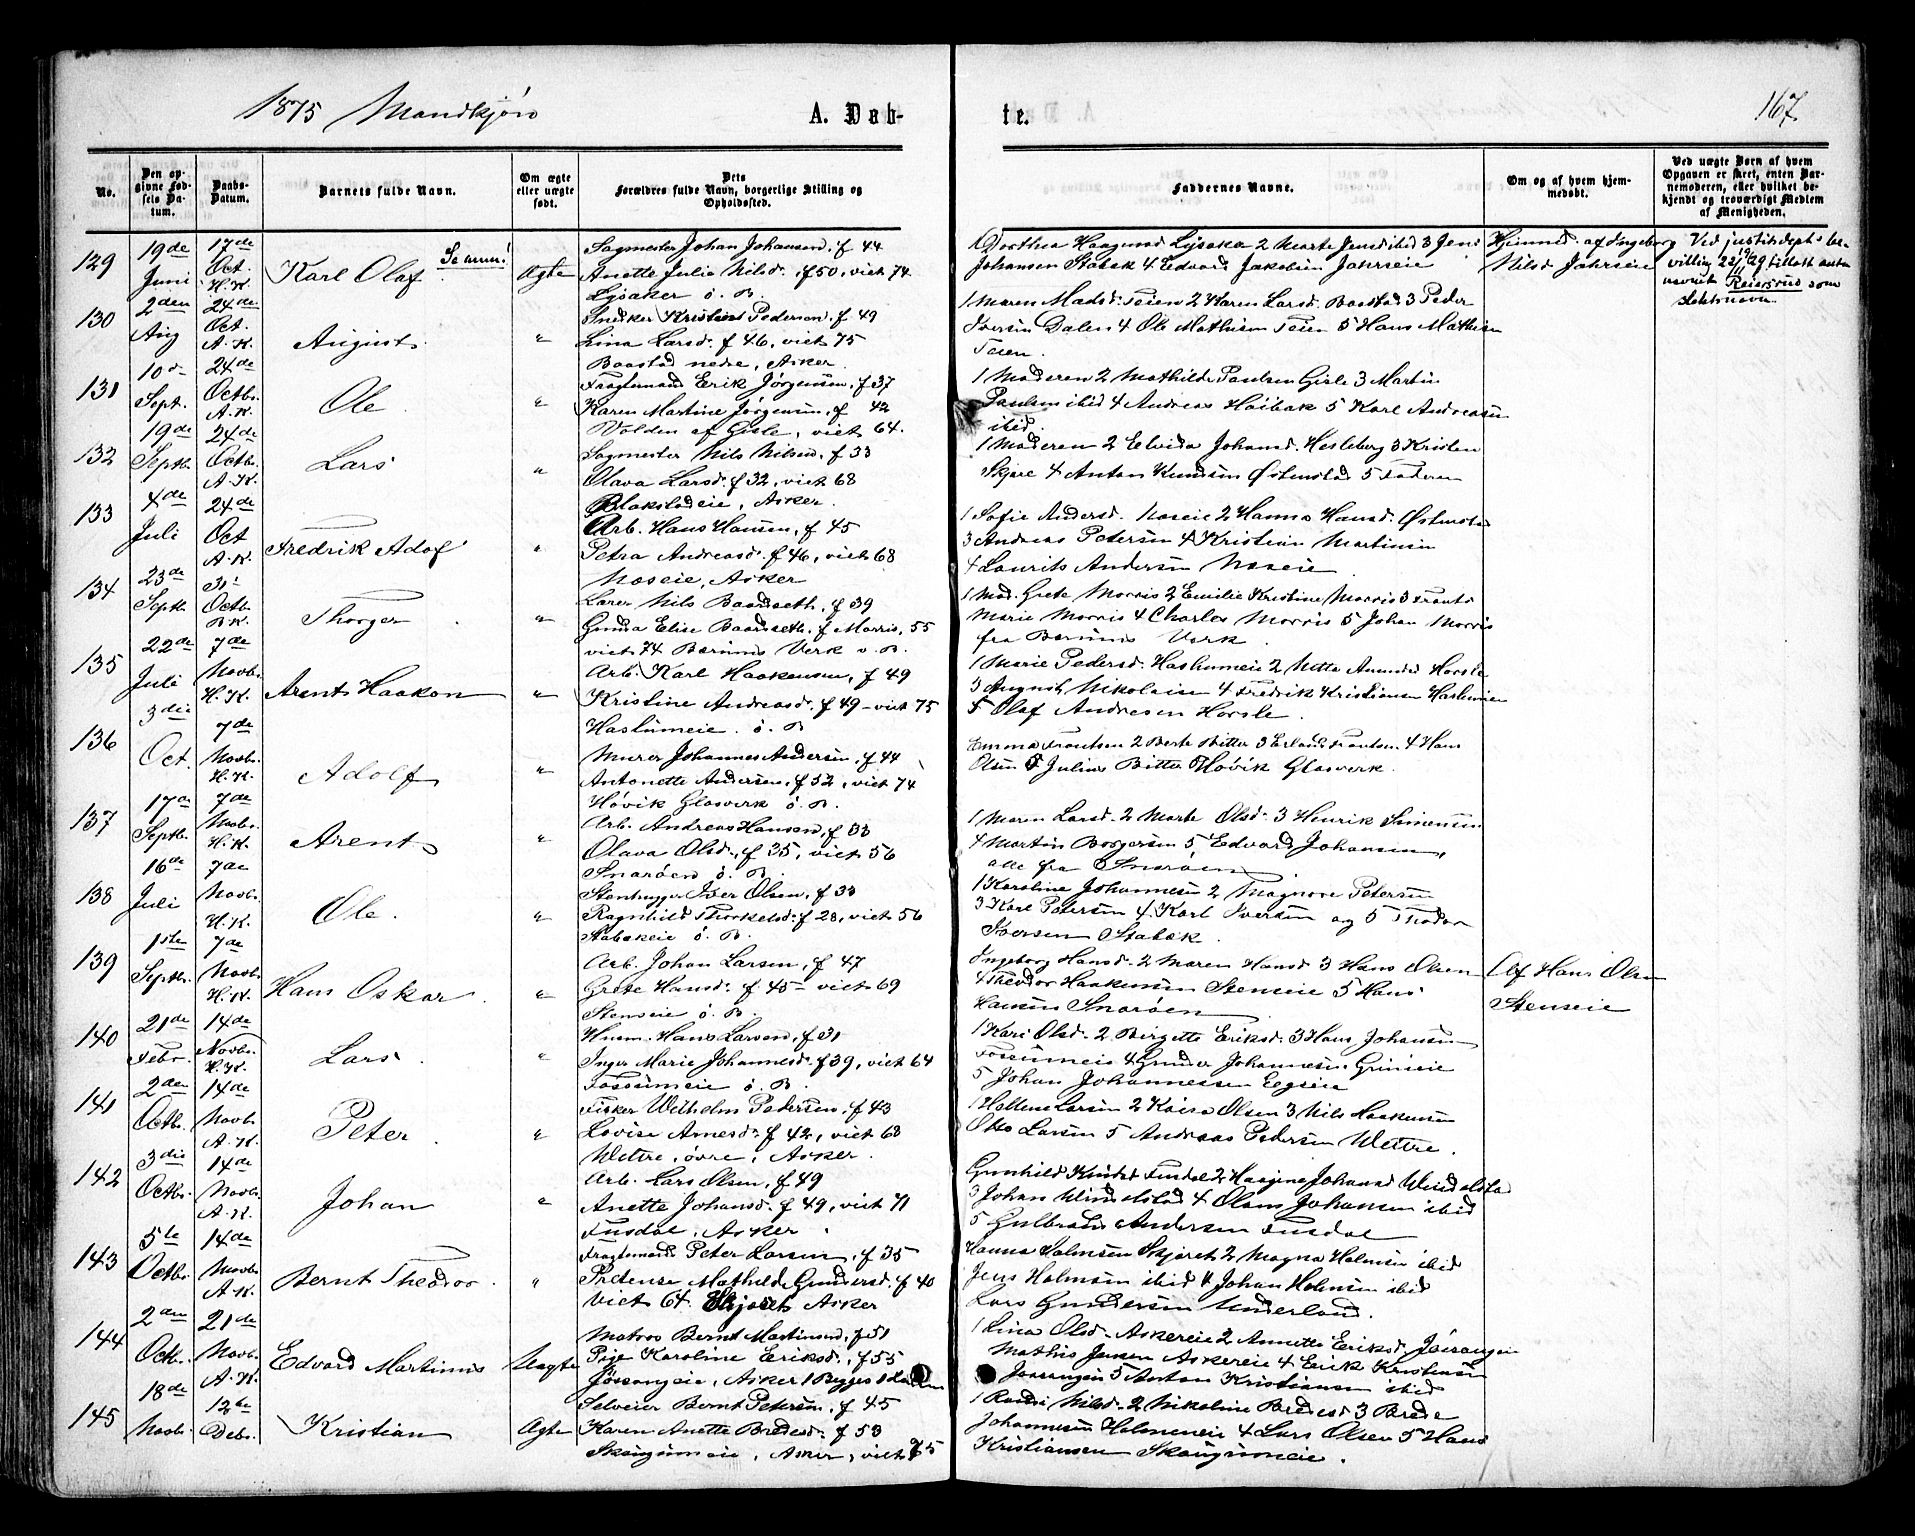 1875 Mandkjøn
A. Døb-
te.
167.
No.
Den op-
givne Fød-
sels Da-
tum.
Daabs-
Datum.
Barnets fulde Navn.
Om ægte
eller uægte
født.
Dets
Forældres fulde Navn, borgerlige Stilling og
Opholdssted.
Faddernes Navne.
Om og af hvem hjem-
medøbt.
Ved uægte Børn af hvem
Opgaven er skeet, enten Bar-
nemoderen, eller hvilket be-
kjendt og troværdigt Medlem
af Menigheden.
129
19de
Juni
17de
Oct.
H. K.
Karl Olaf
Se anm!
Ægte
Sagmester Johan Johansen, f 44
Anette Julie Nilsd. f 50, viet 74
Lysaker ö. B.
1 Dorthea Haagensd Lysaker 2 Marte Jensd ibid 3 Jens
Johansen Stabæk 4 Edvard Jakobsen Jahrseie
Hjemmed. af Ingeborg
Nilsd Jahrseie
Ved justisdepts be-
villing 22/11 1929 tillatt anta
navnet Reiersrud som
slektsnavn
130
2den
Aug
24de
Oct.
A. K.
August
"
Snedker Kristian Pedersen, f 49
Lina Larsd. f 46, viet 75
Baastad nedre, Asker
1 Maren Madsd. Teien 2 Karen Larsd. Baastad 3 Peder
Iversen Dalen 4 Ole Mathisen Teien 5 Hans Mathisen
Teien.
131
10de
Sept.
24de
Octbr.
A. K.
Ole
"
Fragtemand Erik Jørgensen, f 37
Karen Martine Jørgensen, f 42
Volden af Gisle, viet 64.
1 Moderen 2 Mathilde Paulsen Gisle 3 Martin
Paulsen ibid 4 Andreas Høibak 5 Karl Andreasen
ibid.
132
19de
Septbr.
24de
Octbr.
A. K.
Lars
"
Sagmester Nils Nilsen, f 33
Olava Larsd. f 32, viet 68
Blakstadeie, Asker.
1 Moderen 2 Elvida Johansd. Hesleberg 3 Kristen
Skjære 4 Anton Knudsen Østenstad 5 Faderen
133
4de
Juli
24de
Oct
A. K.
Fredrik Adof
"
Arb. Hans Hansen, f 45
Petra Andreasd. f 46, viet 68
Næseie, Asker
1 Sofie Andersd. Næseie 2 Hanna Hansd. Østenstad
3 Andreas Petersen 4 Kristian Martinsen
4 Laurits Andersen Næseie
134
23de
Septbr.
31'
Octbr.
B. K.
Thorger
"
Lærer Nils Baardseth, f 39
Gunda Elise Baardseth, f Morris, 55
viet 74 Bærums Verk v. B.
1 Mad. Grete Morris 2 Emilie Kristine Morris 3
Marie Morris 4 Charles Morris 5 Johan Morris
fra Bærums Verk
135
22de
Juli
7de
Novbr.
H. K.
Arent Haakon
"
Arb. Karl Haakensen, f 49
Kristine Andreasd. f 49 - viet 75
Haslumeie. ö. B
1 Marie Pedersd. Haslumeie 2 Mette Amundsd Horsle
3 August Nikolaisen 4 Fredrik Kristiansen Haslumeie
5 Olaf Andresen Horsle.
136
3die
Oct.
7de
Novbr.
H. K.
Adolf
"
Murer Johannes Andersen, f 44
Antonette Andersen, f 52, viet 74
Høvik Glasverk ö. B.
Emma Frantsen 2 Berte Bitter 3 Erland Frantsen. 4 Hans
Olsen 5 Julius Bitter Høvik Glasverk.
137
17de
Septbr.
7de
Novbr.
H. K.
Arent
"
Arb. Andreas Hansen, f 33
Olava Olsd., f 35, viet 56
Snarøen ö. B.
1 Maren Larsd. 2 Marte Olsd. 3 Henrik Simensen
4 Martin Borgersen 5 Edvard Johansen,
alle fra Snarøen
138
16de
Juli
7de
Novbr.
H. K.
Ole.
"
Stenhugger Iver Olsen, f 33
Ragnhild Thorkelsd. f 28, viet 56
Stabækeie ö. B.
1 Karoline Johannesen 2 Magnore Petersen
3 Karl Petersen 4 Karl Iversen og 5 Theodor
Iversen Stabæk.
139
1ste
Septbr.
7de
Novbr.
H. K.
Hans Oskar
"
Arb. Johan Larsen, f 47
Grete Hansd. f 45 - viet 69
Stenseie ö. B.
Ingeborg Hansd. 2 Maren Hansd 3 Hans Olsen
4 Theodor Haakensen Stenseie 5 Hans
Hansen Snarøen
Af Hans Olsen
Stenseie
140
21de
Febr.
14de
Novbr.
H. K.
Lars
"
Husm. Hans Larsen, f 31
Inger Marie Johannesd. f 39, viet 64
Fossumeie ö. B.
1 Kari Olsd. 2 Birgette Eriksd. 3 Hans Johansen
Fossumeie 4 Gunder Johannesen Grinieie
5 Johan Johannessen Eegseie
141
2den
Octbr.
14de
Novbr.
A. K.
Peter
"
Fisker Wilhelm Pedersen, f 43
Lovise Arnesd. f 42, viet 63
Wettre, øvre, Asker.
1 Hellene Larsen 2 Kaisa Olsen 3 Nils Haakensen
Otto Larsen 5 Andreas Pedersen Wettre.
142
3die
Octbr.
14de
Novbr.
A. K.
Johan
"
Arb. Lars Olsen, f 49
Anette Johansd. f 49, viet 71
Fusdal, Asker
Gunhild Knudsd Fusdal 2 Haagine Johansd Windelstad
3 Johan Windelstad 4 Olaus Johansen ibid
5 Gulbrand Andersen Fusdal
143
5te
Octbr.
14de
Novbr.
A. K.
Bernt Theodor
"
Fragtemand Peter Larsen, f 35
Pretense Mathilde Gundersd. f 40
Viet 64. Skjæret Asker
Hanna Holmsen Skjæret 2 Magna Holmsen ibid
Jens Holmsen ibid 4 Johan Holmsen ibid
Lars Gundersen Underland.
144
2den
Octbr.
21de
Novbr.
A. K.
Edvard Martinius
Uægte
Matros Bernt Martinsen, f 51
Pige Karoline Eriksd., f 55
Jössongeie, Asker 1 Begges 1
1 Lina Olsd. Askereie 2 Annette Eriksd.
Mathis Jensen Askereie 4 Erik Kristiansen
5 Anton Kristiansen ibid
145
18de
Novbr.
12te
Debr.
Kristian
Ægte
Selveier Bernt Petersen, f 45
Karen Anette Bredesd. f 53
Skougumeie, Asker, viet 75
1 Randi Nilsd. 2 Nikoline Bredesd 3 Brede
Johannesen Holmeneie 4 Lars Olsen 5 Hans
Kristiansen Skougumeie.